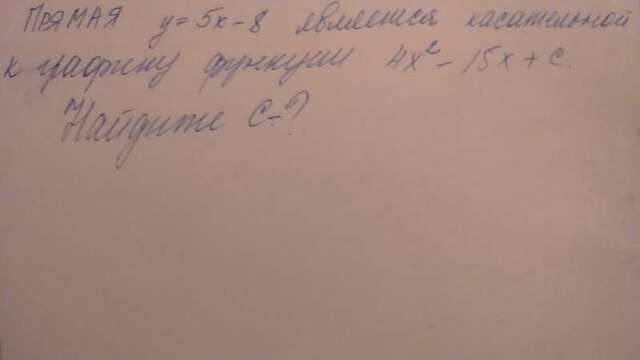 ПРЯМАЯ y = 5x - 8 является касательной
к графику функции 4x² - 15x + c.
Найдите c - ?